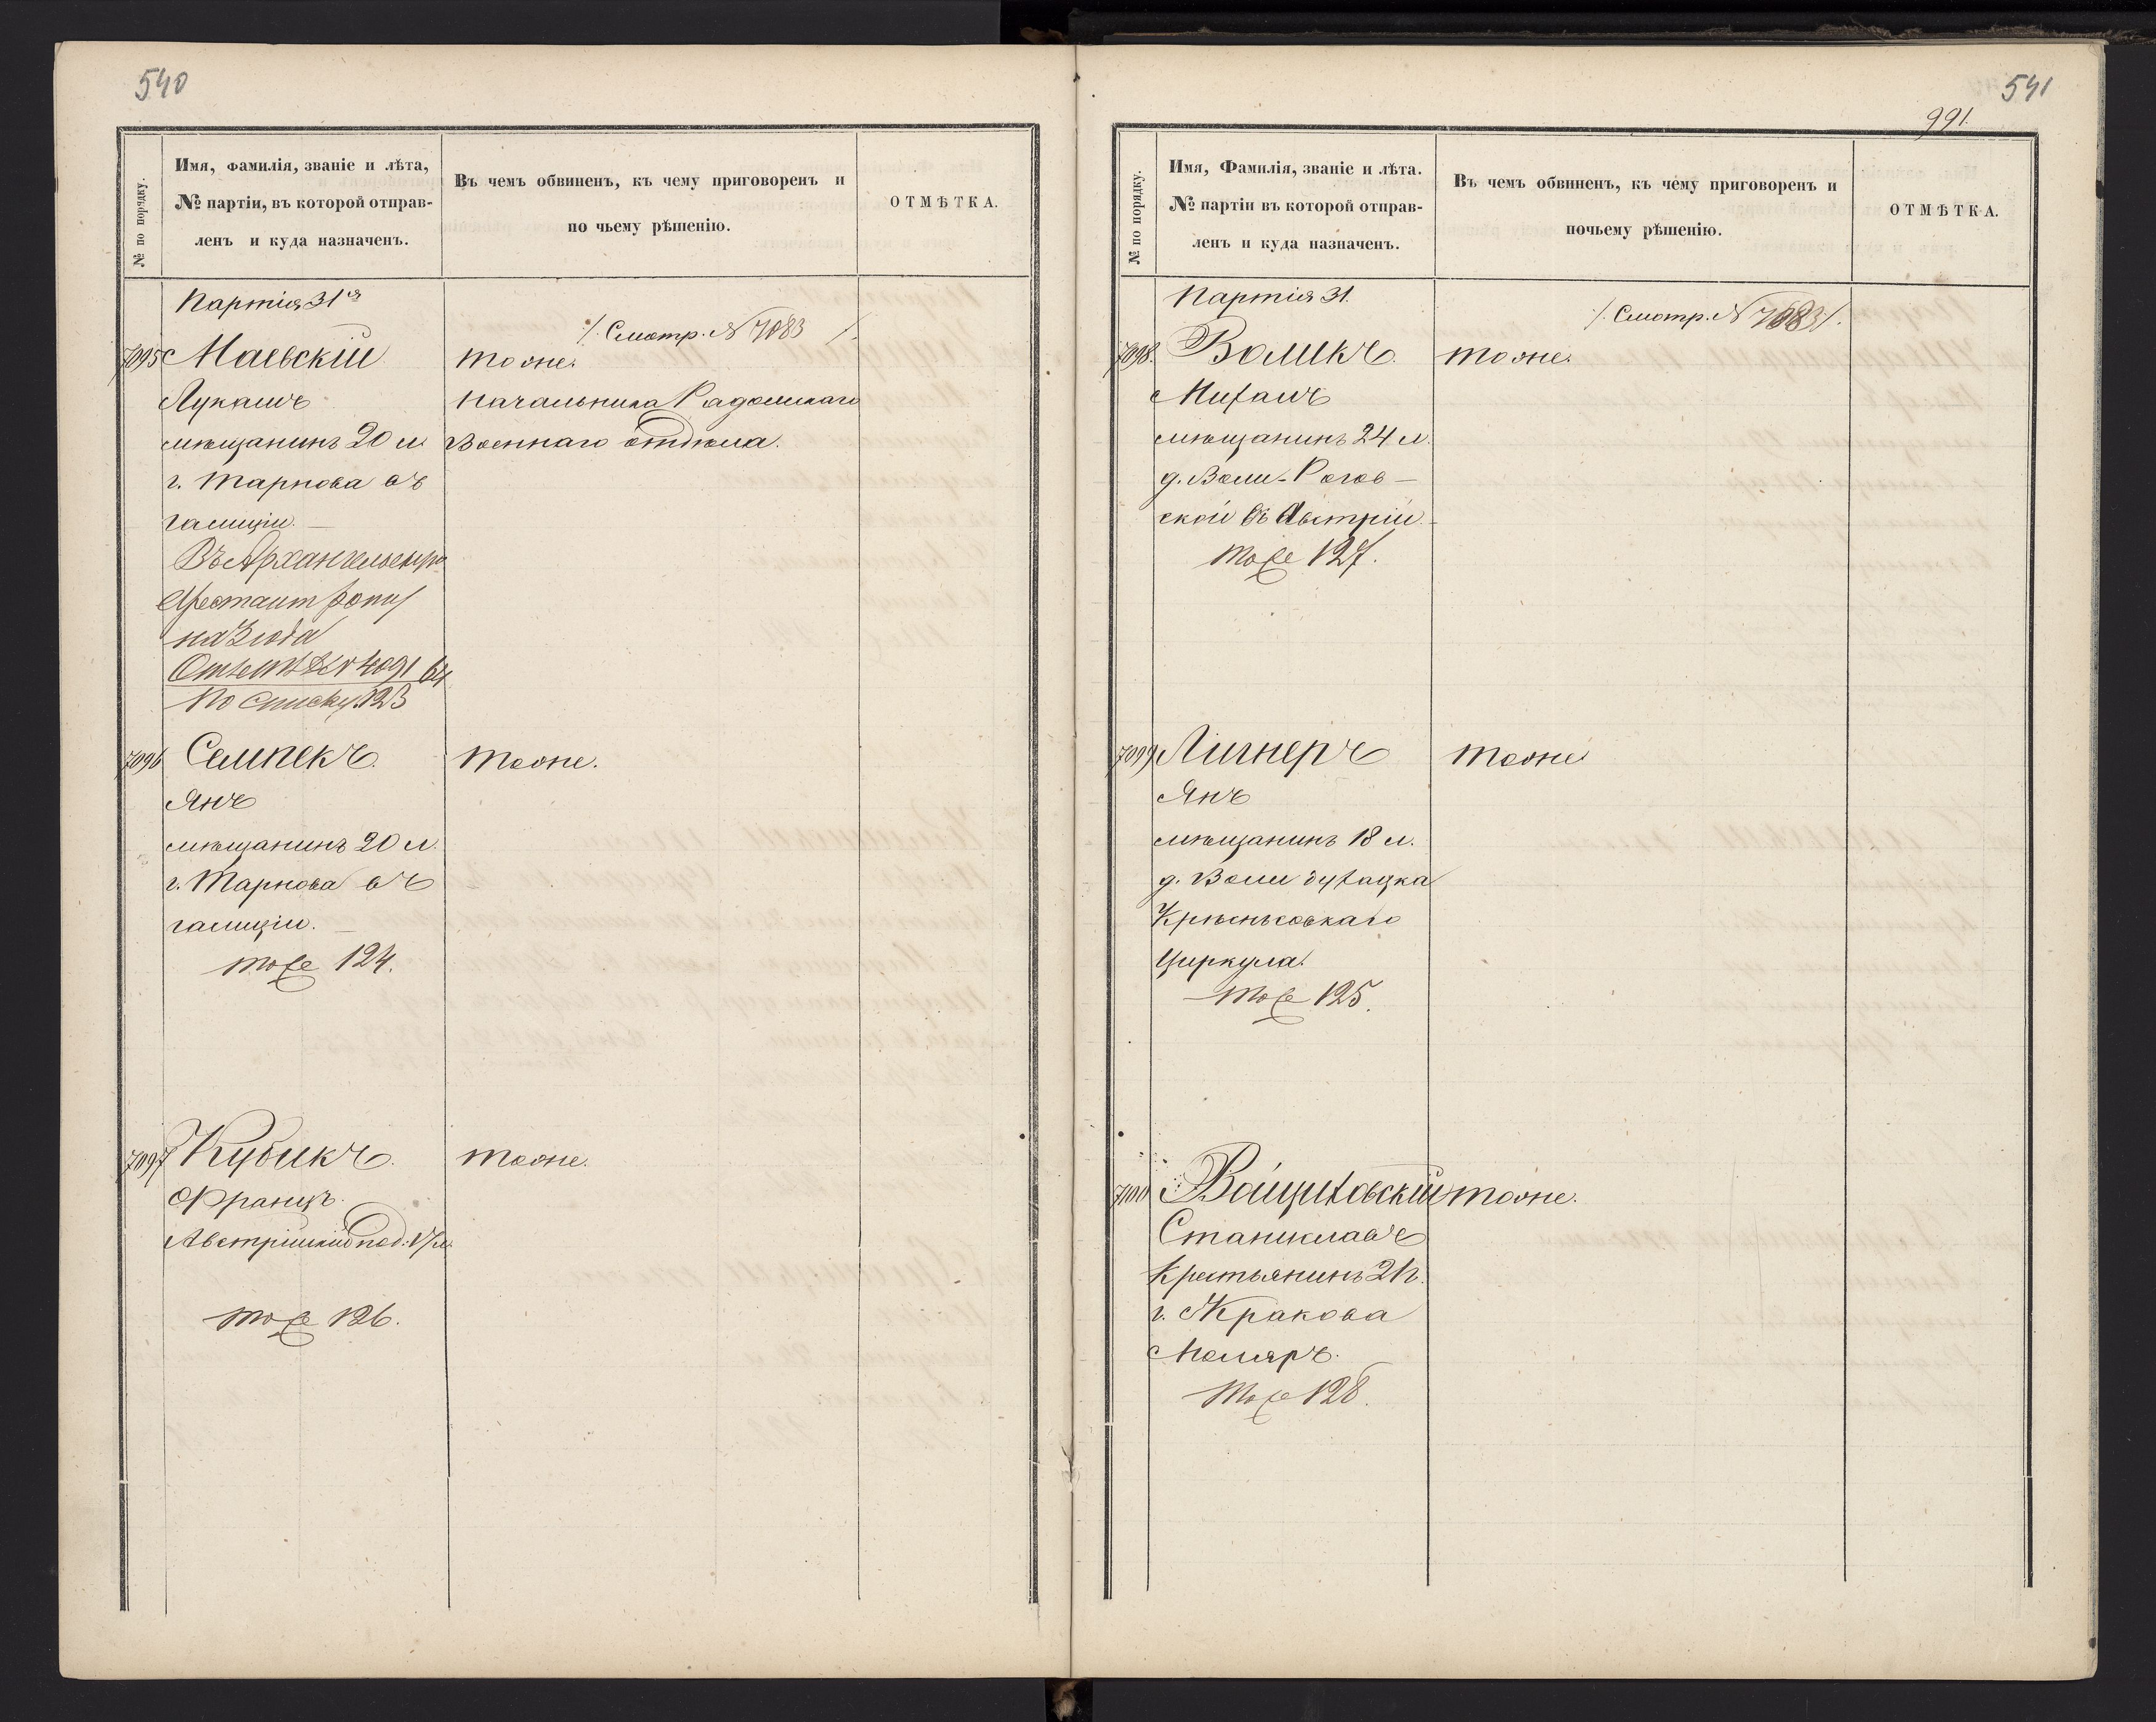 540
№ по порядку.
Имя, фамилія, званіе и лѣта,
№ партіи, въ которой отправ-
ленъ и куда назначенъ.
Въ чемъ обвиненъ, къ чему приговоренъ и
по чьему рѣшенію.
ОТМѢТКА.
Партія 31я
/. Смотр. № 7083 /.
7095 Маевскій
тоже.
Лукашъ
Начальника Радомскаго
мѣщанинъ 20 л.
Военнаго отдѣла.
г. Тарнова въ
Галиціи.
Въ Архангельск
Арестант роту
на 3 года
4091 64
По списку 123
7096 Семпекъ.
тоже.
Янъ
мѣщанинъ 20 л.
г. Тарнова въ
Галиціи.
тоже 124.
7097 Кубикъ.
тоже.
Францъ.
Австрійскій под: 17 л.
тоже 126.
541
991.
№ по порядку.
Имя, Фамилія, званіе и лѣта.
№ партіи въ которой отправ-
ленъ и куда назначенъ.
Въ чемъ обвиненъ, къ чему приговоренъ и
почьему рѣшенію.
ОТМѢТКА.
Партія 31.
/. Смотр. № 7083 /.
7098. Воликъ.
тоже.
Михалъ
мѣщанинъ 24 л.
д. Воли-Рогов-
ской въ Австріи.
тоже 127.
7099 Лигнеръ
тоже
Янъ
мѣщанинъ 18 л.
д. Воли
Циркула.
тоже 125.
7100
тоже.
Станиславъ
Крестьянинъ
г. Кракова
Маляръ.
тоже 128.